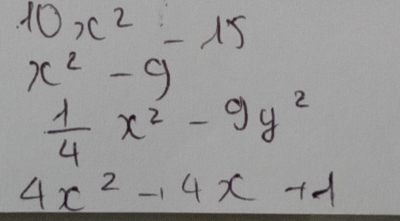 10x² - 15
x² - 9
1/4 x² - 9y²
4x² - 4x + 1